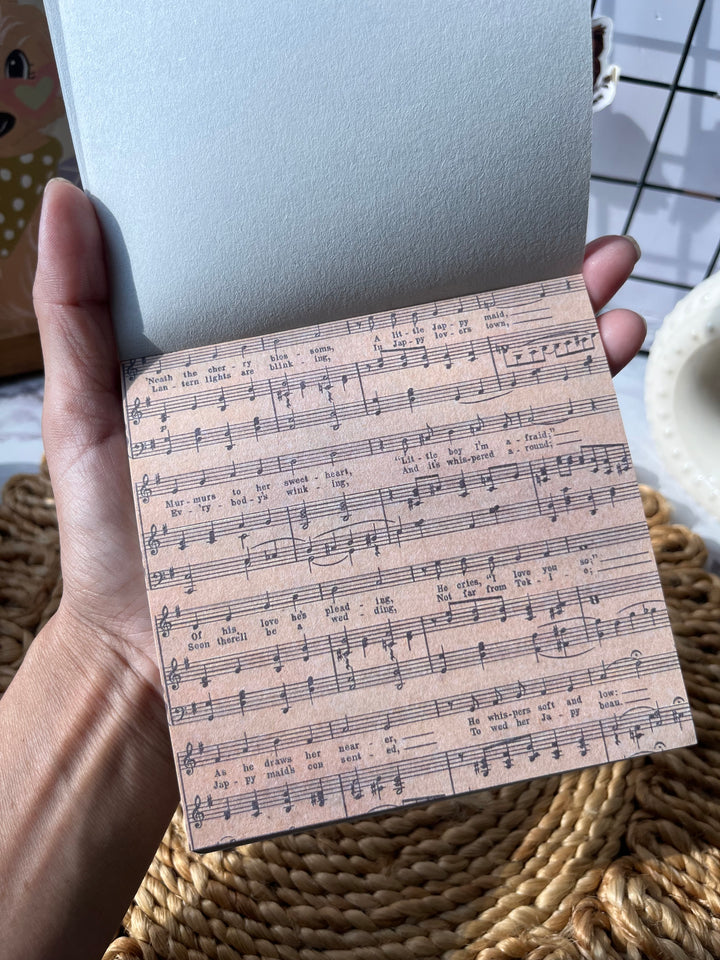 'Neath the cher - ry blos - soms, A lit - tle Jap - py maid,
Lan - tern lights are blink - ing, In Jap - py lov - ers town,
p
Mur - murs to her sweet - heart, "Lit - tle boy I'm a - fraid;"
Ev - 'ry - bod - y's wink - ing, And it's whis - pered a - round;
Of his love he's plead - ing, He cries, "I love you so;"
Soon there'll be a wed - ding, Not far from Tok - i - o;
As he draws her near - er, He whis - pers soft and low:
Jap - py maid's con - sent - ed, To wed her Ja - py beau.